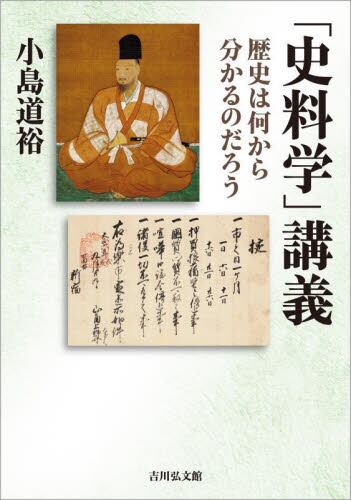 「史料学」講義
歴史は何から
分かるのだろう
小島道裕
掟
一市之日一ヶ月
一日 六日 十一日
十六日 廿一日 廿六日
一押買狼藉すへからさる事
一国質郷質不可取之事
一喧嘩口論令停止事
一諸役一切不可有之事
新宿
吉川弘文館